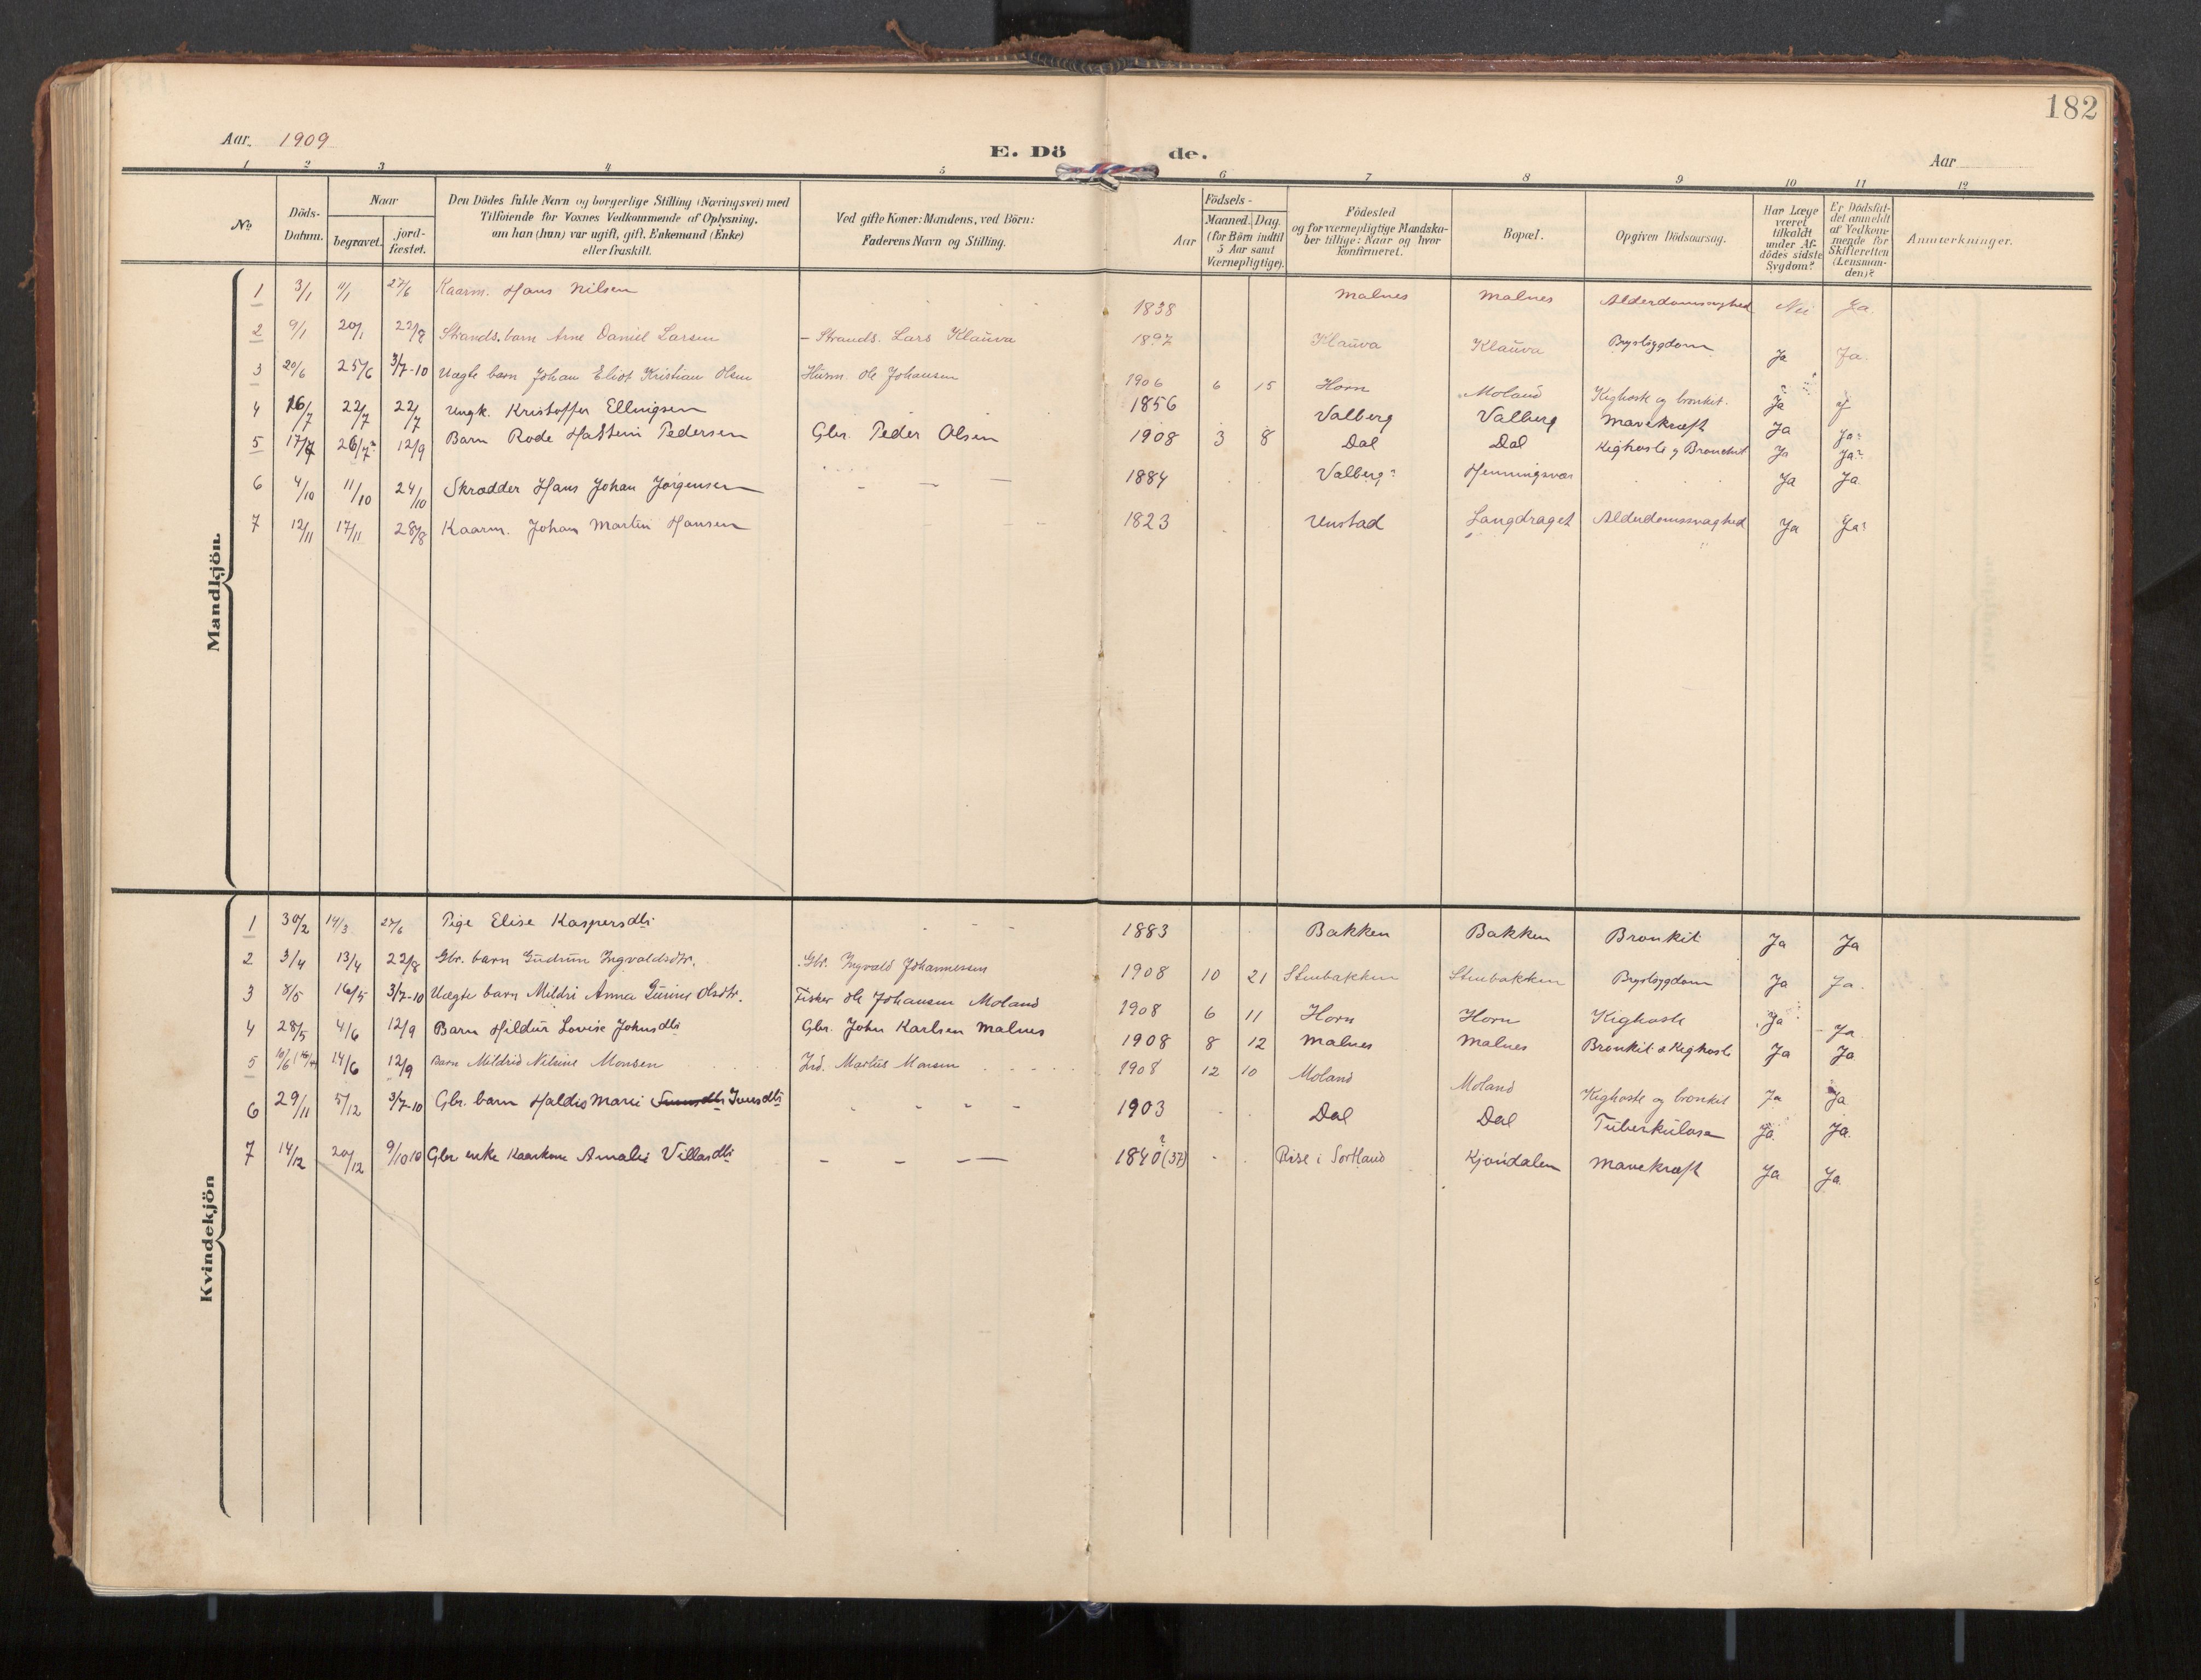 182
Aar. 1909
E. Dö de.
Aar
1 2 3 4 5 6 7 8 9 10 11 12
No
Döds-Datum.
Naar
begravet.
jord-fæstet.
Den Dödes fulde Navn og borgerlige Stilling (Næringsvei) med
Tilföiende for Voxnes Vedkommende af Oplysning,
om han (hun) var ugift, gift, Enkemand (Enke)
eller fraskilt.
Ved gifte Koner: Mandens, ved Börn:
Faderens Navn og Stilling.
Födsels-
Aar
Maaned. Dag.
(for Börn indtil
5 Aar samt
Værnepligtige).
Födested
og for værnepligtige Mandska-
ber tillige: Naar og hvor
konfirmeret.
Bopæl.
Opgiven Dödsaarsag.
Har Læge
været
tilkaldt
under Af-
dödes sidste
Sygdom?
Er Dödsfal-
det anmeldt
af Vedkom-
mende for
Skifteretten
(Lensman-
den)?
Anmærkninger.
Mandkjön.
1 3/1 11/1 27/6 Kaarm. Hans Nilsen 1838 Malnes Malnes Alderdomssvaghed Nei Ja.
2 9/1 20/1 22/8 Strands. barn Arne Daniel Larsen – Strands. Lars Klauva 1897 Klauva Klauva Brystsygdom Ja Ja.
3 20/6 25/6 3/7-10 Uægte barn Johan Eliot Kristian Olsen Husm. Ole Johansen 1906 6 15 Horn Moland Kighoste og bronkit. Ja
4 16/7 22/7 22/7 Ungk. Kristoffer Ellingsen 1856 Valberg Valberg Mavekræft Ja Ja?
5 17/7 26/7? 12/9 Barn Rode Hastein Pedersen Gbr. Peder Olsen 1908 3 8 Dal Dal Kighoste og Bronchit Ja Ja?
6 4/10 11/10 24/10 Skrædder Hans Johan Jørgensen – – – 1884 Valberg? Henningsvær Ja Ja
7 12/11 17/11 28/8 Kaarm. Johan Martin Hansen 1823 Unstad Langdraget Alderdomssvaghed Ja Ja?
Kvindekjön
1 14/3 27/6 Pige Elise Kaspersdtr 1883 Bakken Bakken Bronkit Ja Ja
2 3/4 13/4 22/8 Gbr. barn Gudrun Ingvaldsdtr. Gbr. Ingvald Johannessen 1908 10 21 Stenbakken Stenbakken Brystsygdom Ja Ja.
3 8/5 16/5 3/7-10 Uægte barn Mildri Anna Olsdtr. Fisker Ole Johansen Moland 1908 6 11 Horn Horn Kighoste Ja Ja
4 28/5 4/6 12/9 Barn Hildur Lovise Johnsdtr Gbr. John Karlsen Malnes 1908 8 12 Malnes Malnes Bronkit & Kighoste Ja Ja
5 10/6 14/6 12/9 Barn Mildrid Nilsine Monsen Ird. Martus Monsen 1908 12 10 Moland Moland Kighoste og bronkit Ja Ja
6 29/11 5/12 3/7-10 Gbr. barn Haldis Marie Iversdtr 1903 Dal Dal Tuberkulose Ja. Ja.
7 14/12 20/12 9/10 10 Gbr enke Kaarkone Amalie Villasdtr – – – 1840? (37) Rise i Sortland Kjøndalen Mavekræft Ja Ja